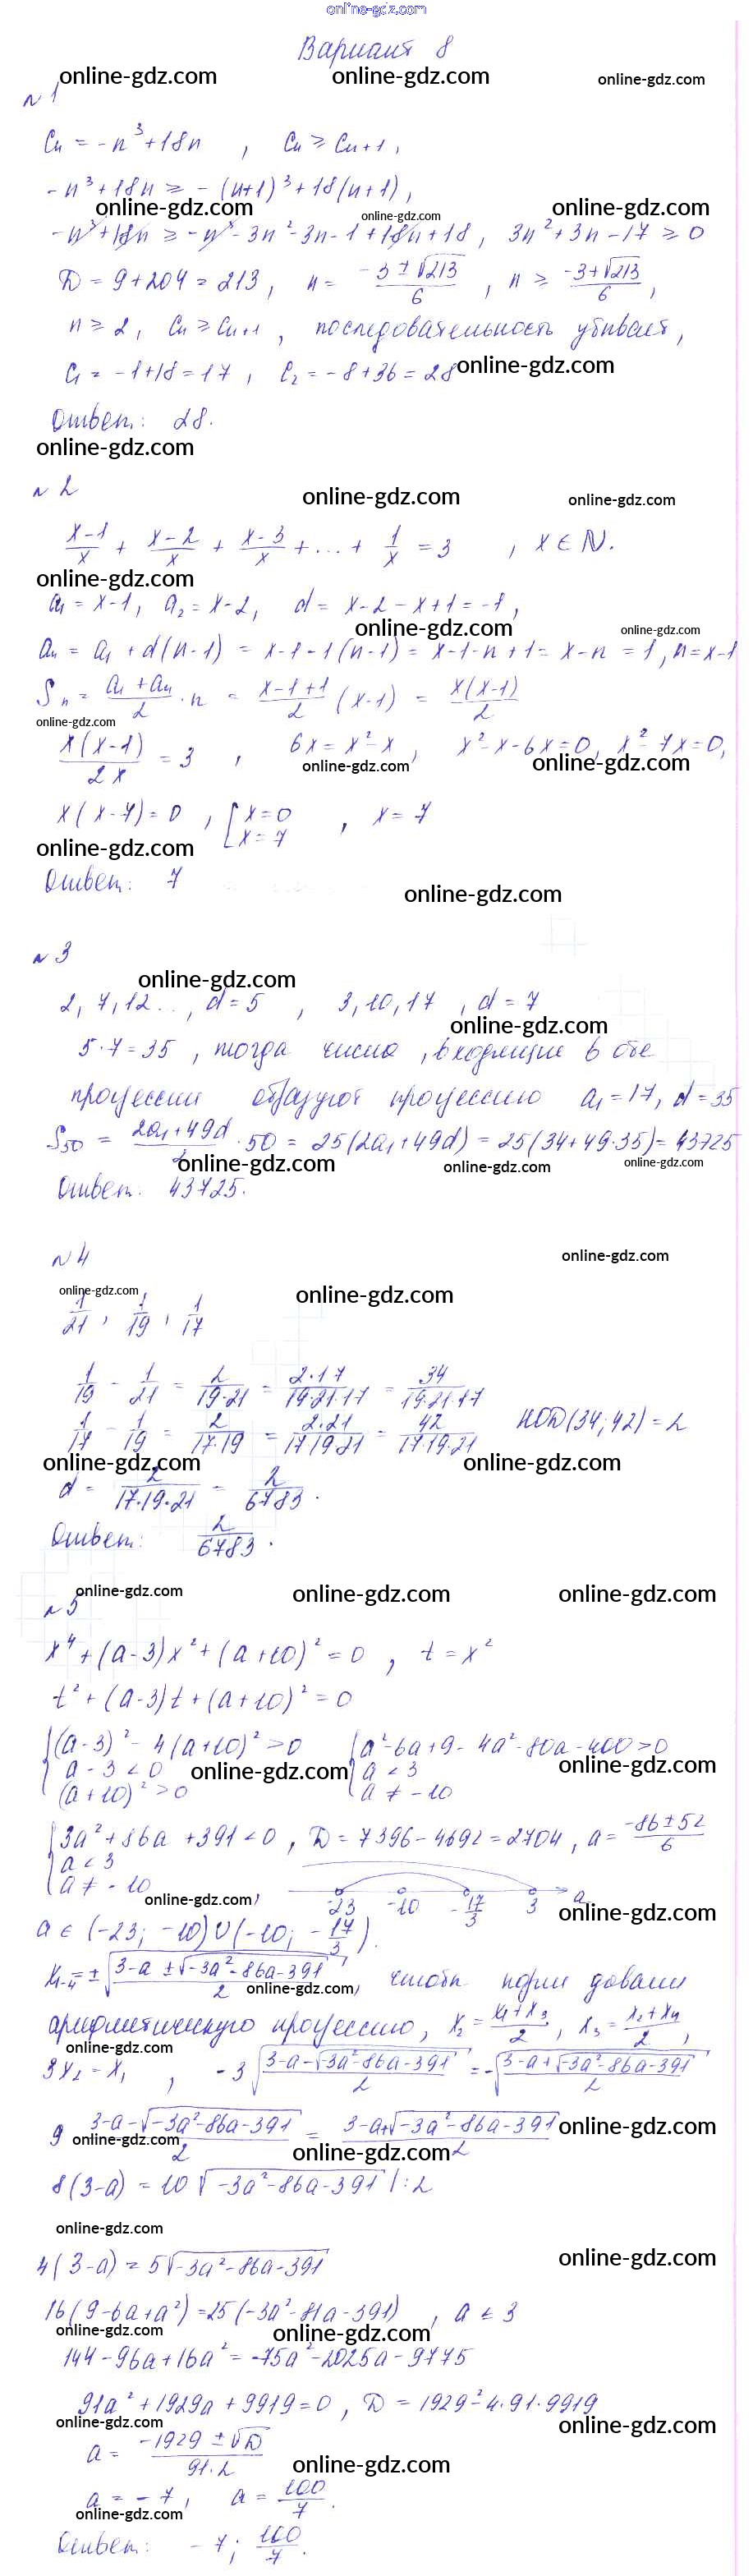 online-gdz.com
Вариант 8
online-gdz.com online-gdz.com online-gdz.com
№ 1
Cn = -n³+18n , Cn ≥ Cn+1,
-n³+18n ≥ -(n+1)³+18(n+1),
online-gdz.com online-gdz.com online-gdz.com
-n³+18n ≥ -n³-3n²-3n-1+18n+18, 3n²+3n-17 ≥ 0
D = 9+204 = 213, n = (-3±√213)/6 , n ≥ (-3+√213)/6,
n ≥ 2, Cn ≥ Cn+1, последовательность убывает,
C1 = -1+18 = 17, C2 = -8+36 = 28 online-gdz.com
Ответ: 28.
online-gdz.com
№ 2
online-gdz.com online-gdz.com
(x-1)/x + (x-2)/x + (x-3)/x + ... + 1/x = 3 , x ∈ N.
online-gdz.com
a1 = x-1, a2 = x-2, d = x-2-x+1 = -1,
online-gdz.com online-gdz.com
an = a1 + d(n-1) = x-1-1(n-1) = x-1-n+1 = x-n = 1, n = x-1
Sn = (a1+an)/2 · n = (x-1+1)/2 (x-1) = x(x-1)/2
online-gdz.com
x(x-1)/2x = 3 , 6x = x²-x, x²-x-6x=0, x²-7x=0,
online-gdz.com online-gdz.com
x(x-7)=0 , [x=0 x=7 , x=7
online-gdz.com
Ответ: 7
online-gdz.com
№ 3
online-gdz.com
2, 7, 12..., d=5 , 3, 10, 17 , d=7
online-gdz.com
5·7=35 , тогда числа, входящие в обе
прогрессии образуют прогрессию a1=17, d=35
S50 = (2a1+49d)/2 · 50 = 25(2a1+49d) = 25(34+49·35) = 43725
online-gdz.com online-gdz.com online-gdz.com
Ответ. 43725.
№ 4
online-gdz.com
online-gdz.com online-gdz.com
1/21 , 1/19 , 1/17
1/19 - 1/21 = 2/(19·21) = (2·17)/(19·21·17) = 34/(19·21·17)
1/17 - 1/19 = 2/(17·19) = (2·21)/(17·19·21) = 42/(17·19·21) НОД(34;42) = 2
online-gdz.com online-gdz.com
d = 2/(17·19·21) = 2/6783.
Ответ: 2/6783.
online-gdz.com online-gdz.com online-gdz.com
№ 5
x⁴+(a-3)x²+(a+10)²=0 , t=x²
t²+(a-3)t+(a+10)²=0
{(a-3)²-4(a+10)²>0 {a²-6a+9-4a²-80a-400>0
a-3<0 online-gdz.com a<3 online-gdz.com
(a+10)²>0 a≠-10
{3a²+86a+391<0, D=7396-4692=2704, a=(-86±52)/6
a<3
a≠-10
online-gdz.com -23 -10 -17/3 3 a online-gdz.com
a ∈ (-23; -10)∪(-10; -17/3).
x1-4=±√((3-a±√(-3a²-86a-391))/2), чтобы корни давали
online-gdz.com
арифметическую прогрессию, x2=(x1+x3)/2, x3=(x2+x4)/2,
online-gdz.com
3x2=x1 , -3√((3-a-√(-3a²-86a-391))/2) = -√((3-a+√(-3a²-86a-391))/2)
9 (3-a-√(-3a²-86a-391))/2 = (3-a+√(-3a²-86a-391))/2 online-gdz.com
online-gdz.com online-gdz.com
8(3-a) = 10√(-3a²-86a-391) |:2
online-gdz.com
4(3-a) = 5√(-3a²-86a-391) online-gdz.com
16(9-6a+a²)=25(-3a²-81a-391) , a<3
online-gdz.com online-gdz.com
144-96a+16a²=-75a²-2025a-9775
91a²+1929a+9919=0, D=1929²-4·91·9919
online-gdz.com online-gdz.com
a = (-1929±√D)/(91·2)
online-gdz.com
a=-7, a=100/7.
online-gdz.com
Ответ: -7; 100/7.